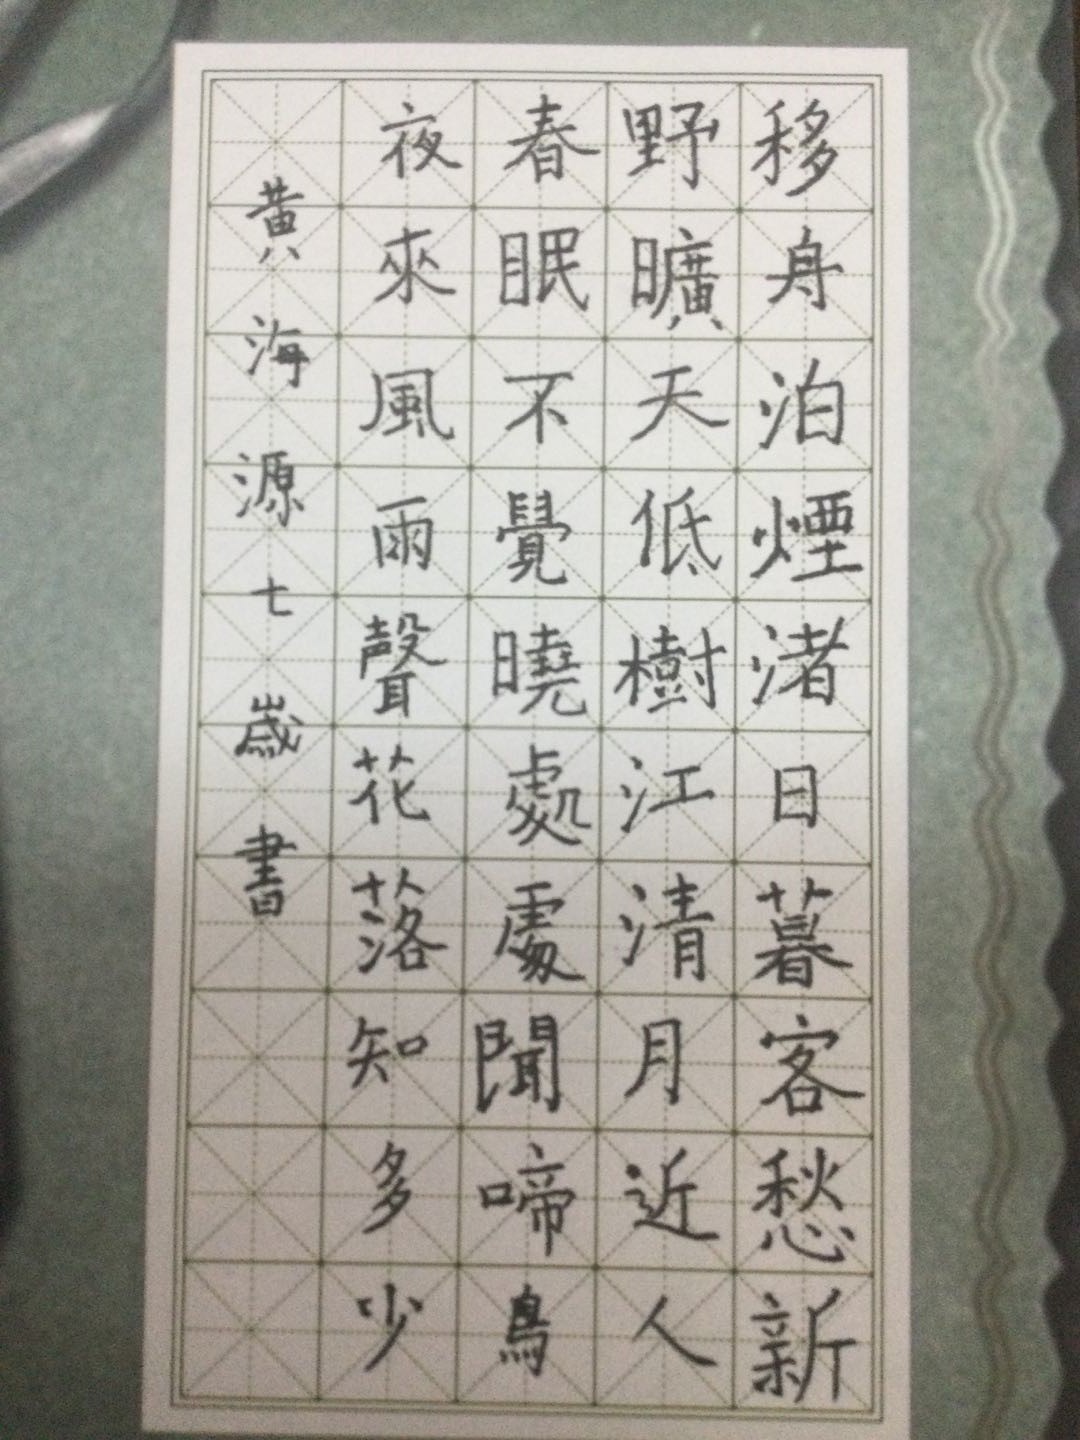 移舟泊煙渚日暮客愁新
野曠天低樹江清月近人
春眠不覺曉處處聞啼鳥
夜來風雨聲花落知多少
黃海源七歲書